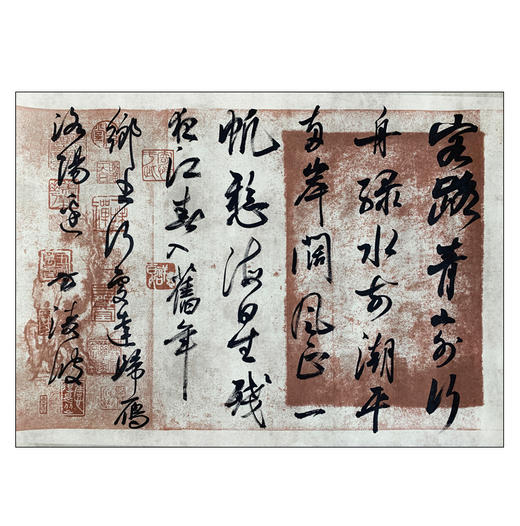 客路青山外行
舟緑水前潮平
两岸闊风正一
帆懸海日生残
夜江春入舊年
鄉书何處達歸雁
洛陽邊